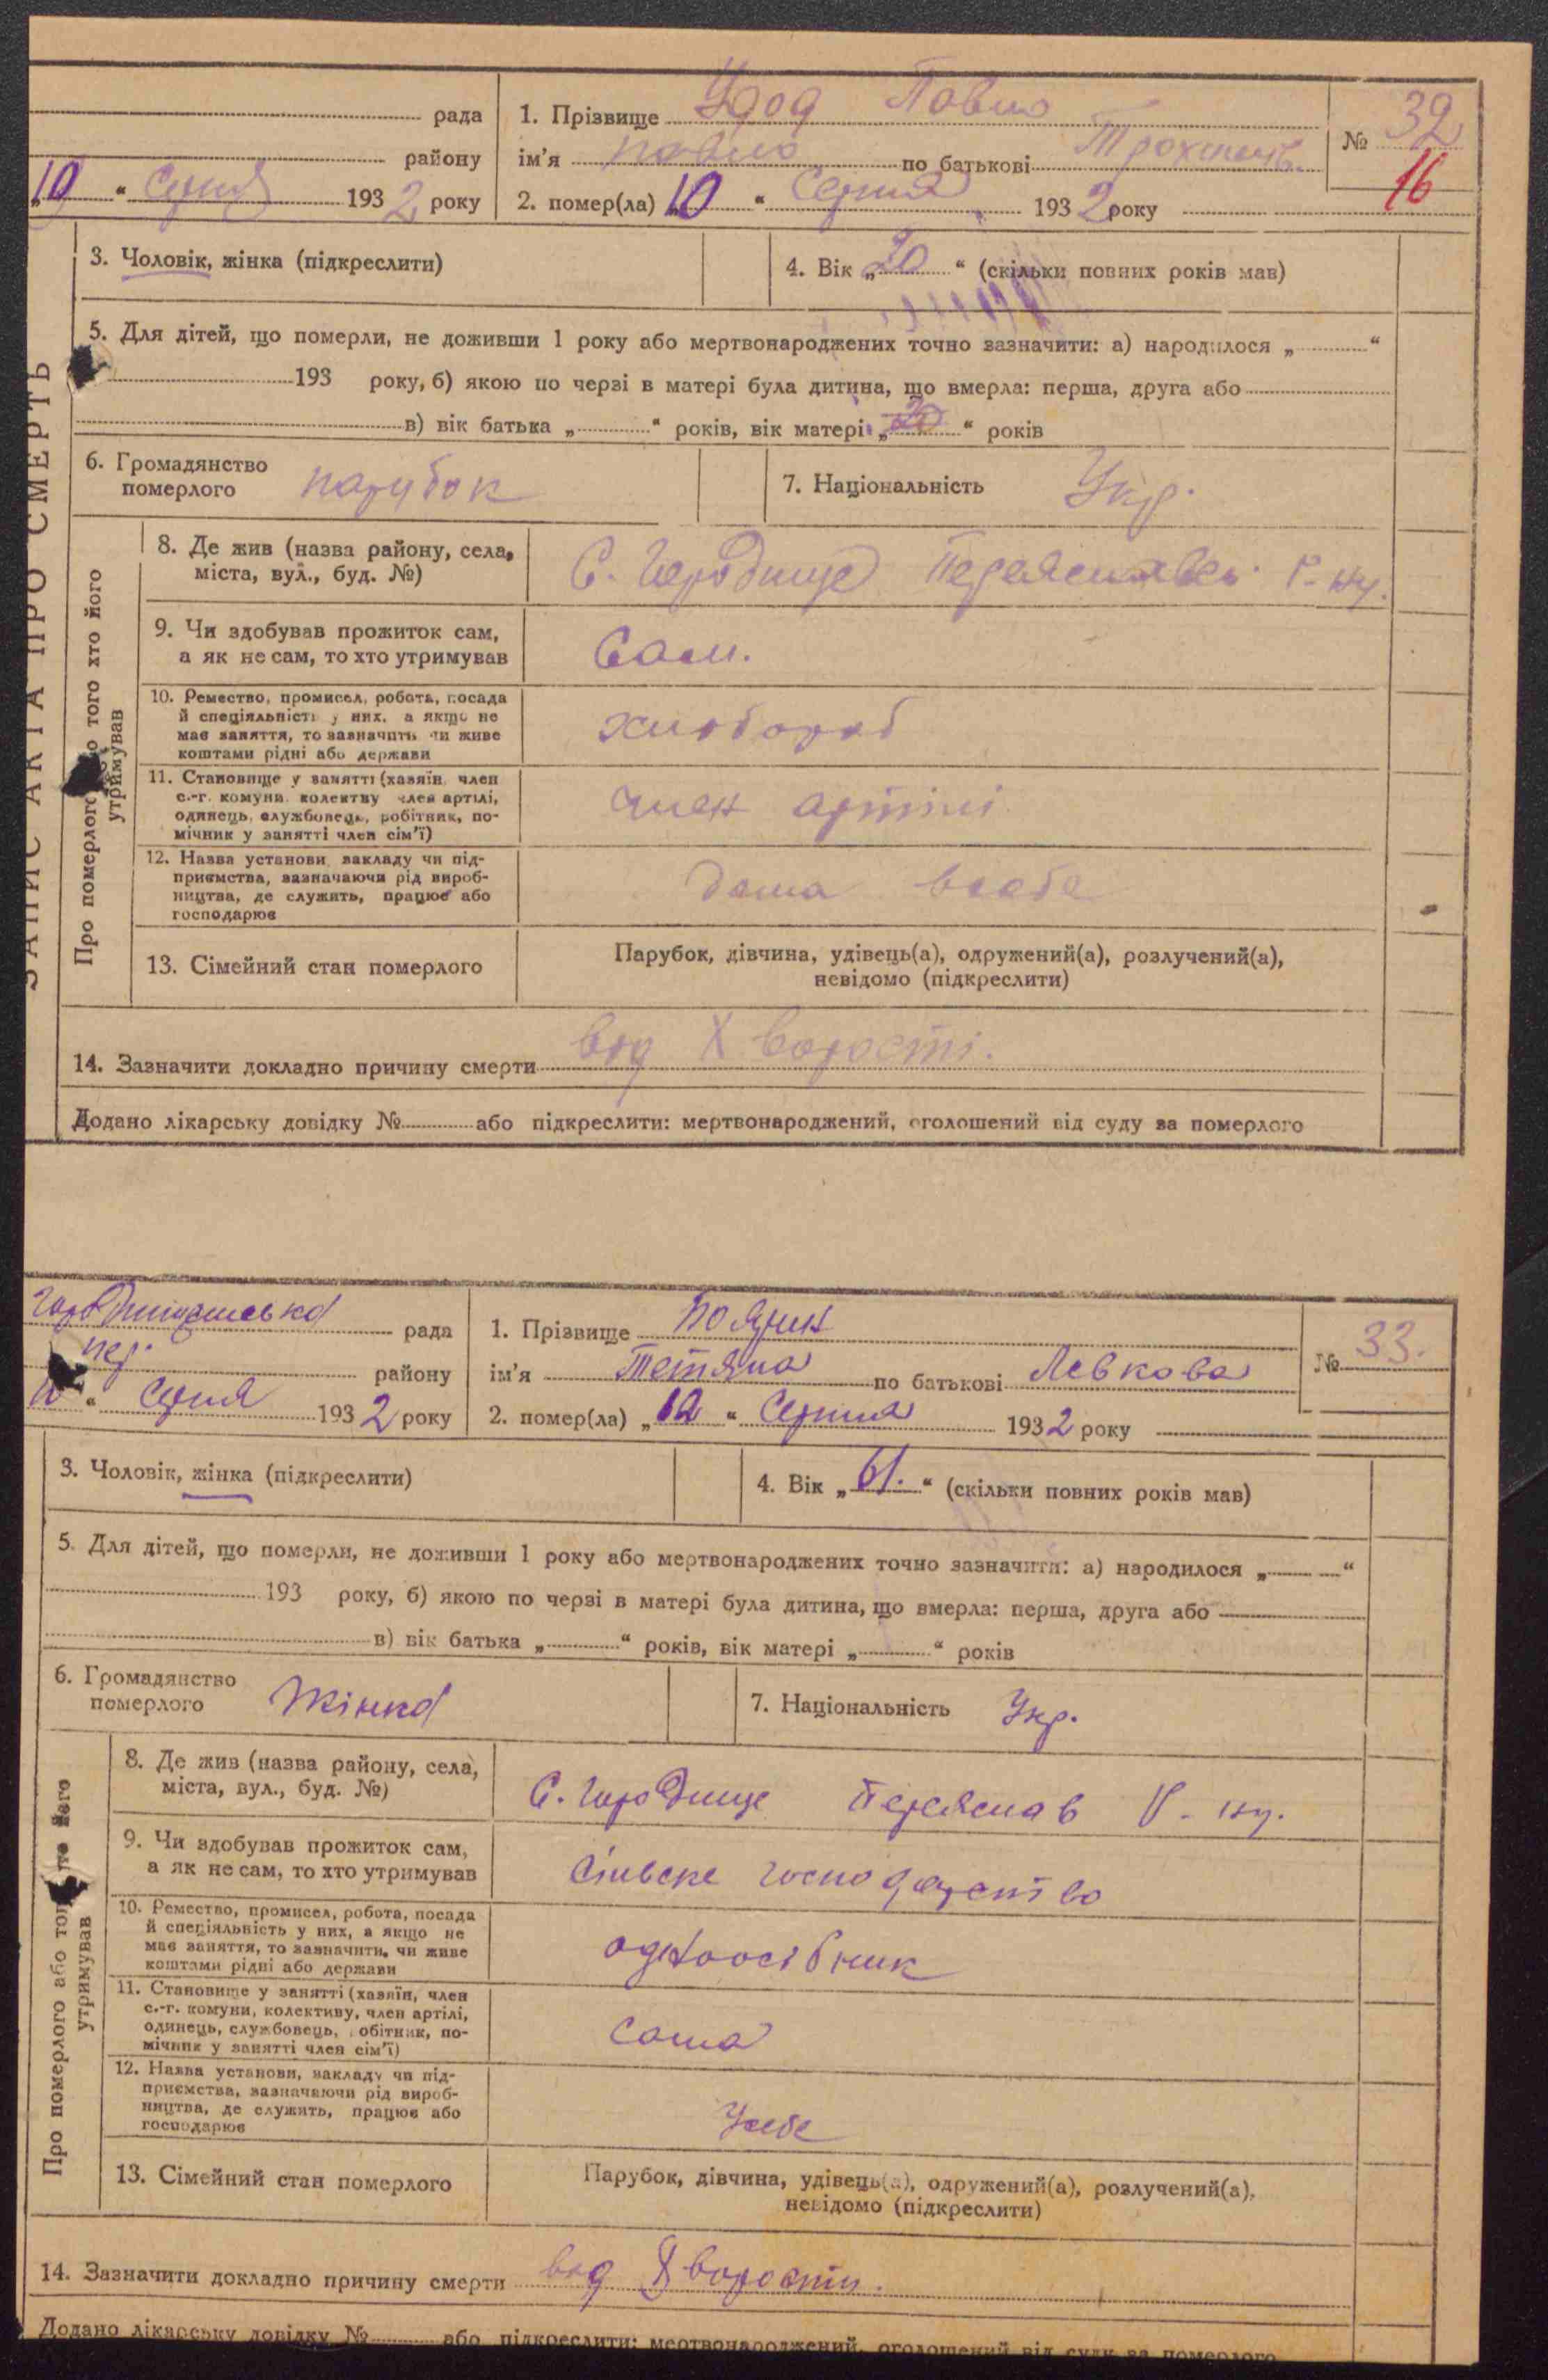 рада
району
"10" Серпня 1932 року
1. Прізвище Удод Павло
ім'я Павло по батькові Трохимів.
2. помер(ла) "10" Серпня 1932 року
№ 32
16
3. Чоловік, жінка (підкреслити)
4. Вік „20“ (скільки повних років мав)
5. Для дітей, що померли, не доживши 1 року або мертвонароджених точно зазначити: а) народилося „ “
193 року, б) якою по черзі в матері була дитина, що вмерла: перша, друга або
в) вік батька „ “ років, вік матері „20“ років
6. Громадянство
померлого парубок
7. Національність Укр.
ЗАПИС АКТА ПРО СМЕРТЬ
Про померлого того хто його
утримував
8. Де жив (назва району, села,
міста, вул., буд. №)
С. Городище Переяславськ. Р-ну.
9. Чи здобував прожиток сам,
а як не сам, то хто утримував
Сам.
10. Ремество, промисел, робота, посада
й спеціяльність у них, а якщо не
має заняття, то зазначить чи живе
коштами рідні або держави
хлібороб
11. Становище у занятті (хазяїн, член
с.-г. комуни, колективу член артілі,
одинець, службовець, робітник, по-
мічник у занятті член сім'ї)
член артілі
12. Назва установи, закладу чи під-
приємства, зазначаючи рід вироб-
ництва, де служить, працює або
господарює
дома
13. Сімейний стан померлого
Парубок, дівчина, удівець(а), одружений(а), розлучений(а),
невідомо (підкреслити)
14. Зазначити докладно причину смерти вод Хворості.
Додано лікарську довідку № або підкреслити: мертвонароджений, оголошений від суду за померлого
рада
пер. району
Серпня 1932 року
1. Прізвище
ім'я Тетяна по батькові Левкова
2. помер(ла) „12“ Серпня 1932 року
№ 33.
3. Чоловік, жінка (підкреслити)
4. Вік „61.“ (скільки повних років мав)
5. Для дітей, що померли, не доживши 1 року або мертвонароджених точно зазначити: а) народилося „ “
193 року, б) якою по черзі в матері була дитина, що вмерла: перша, друга або
в) вік батька „ “ років, вік матері „ “ років
6. Громадянство
померлого Жінка
7. Національність Укр.
Про померлого або того хто його
утримував
8. Де жив (назва району, села,
міста, вул., буд. №)
С. Городище Переяслав Р-ну.
9. Чи здобував прожиток сам,
а як не сам, то хто утримував
Сільске господарство
10. Ремество, промисел, робота, посада
й спеціяльність у них, а якщо не
має заняття, то зазначити, чи живе
коштами рідні або держави
одноосібник
11. Становище у занятті (хазяїн, член
с.-г. комуни, колективу, член артілі,
одинець, службовець, робітник, по-
мічник у занятті член сім'ї)
сама
12. Назва установи, закладу чи під-
приємства, зазначаючи рід вироб-
ництва, де служить, працює або
господарює
Усебе
13. Сімейний стан померлого
Парубок, дівчина, удівець(а), одружений(а), розлучений(а),
невідомо (підкреслити)
14. Зазначити докладно причину смерти вод Хворости.
Додано лікарську довідку № або підкреслити: мертвонароджений, оголошений від суду за померлого